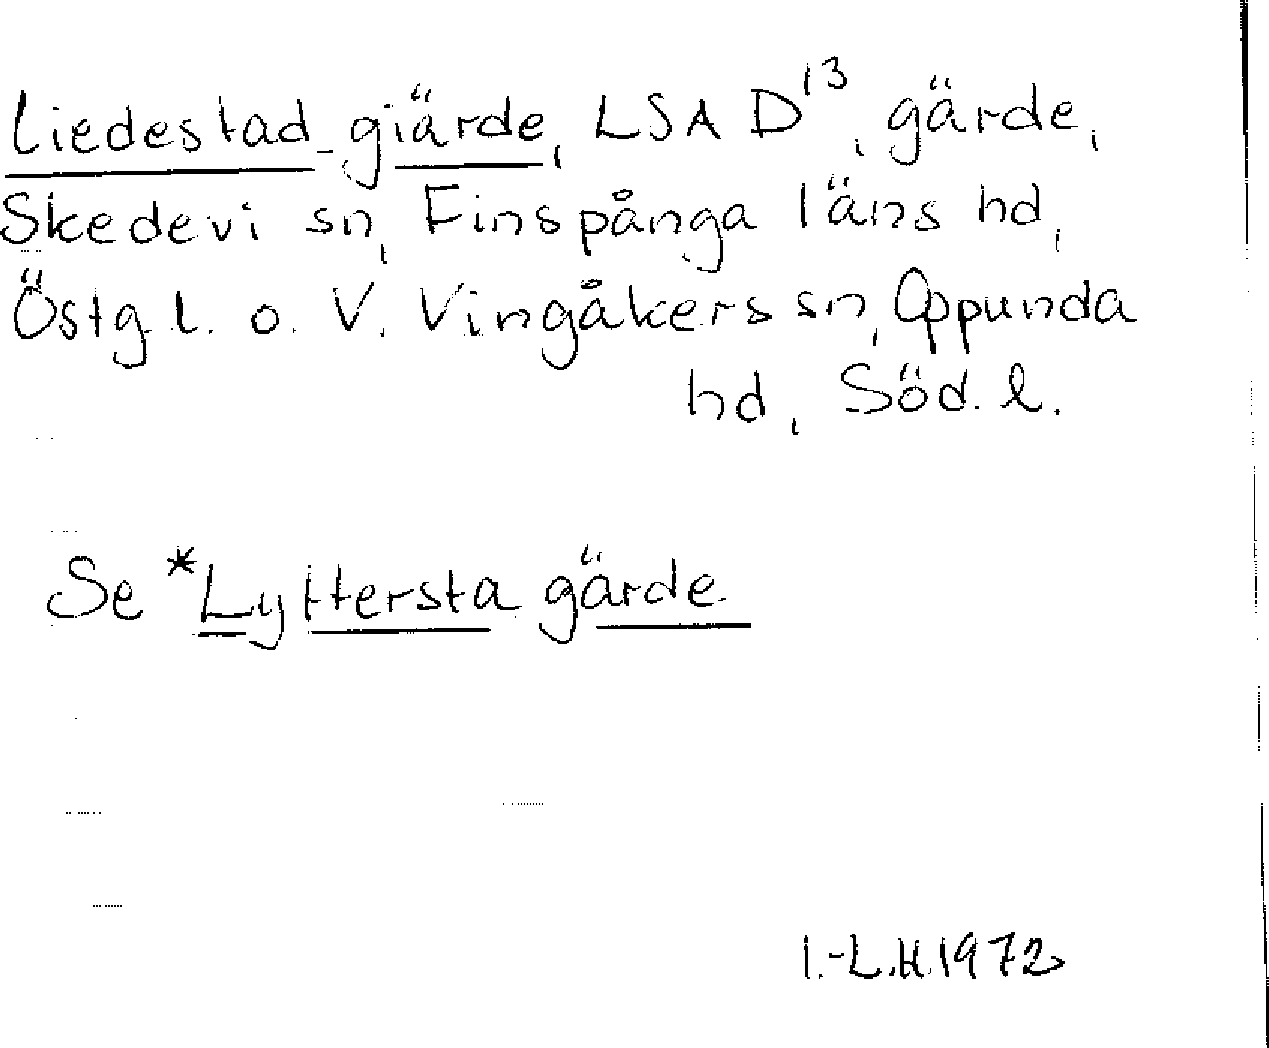 Liedestad giärde, LSA D¹³, gärde,
Skedevi sn, Finspånga läns hd,
Östg. l. o. V. Vingåkers sn, Oppunda
hd, Söd. l.
Se *Lyttersta gärde
I.-L.H.1972